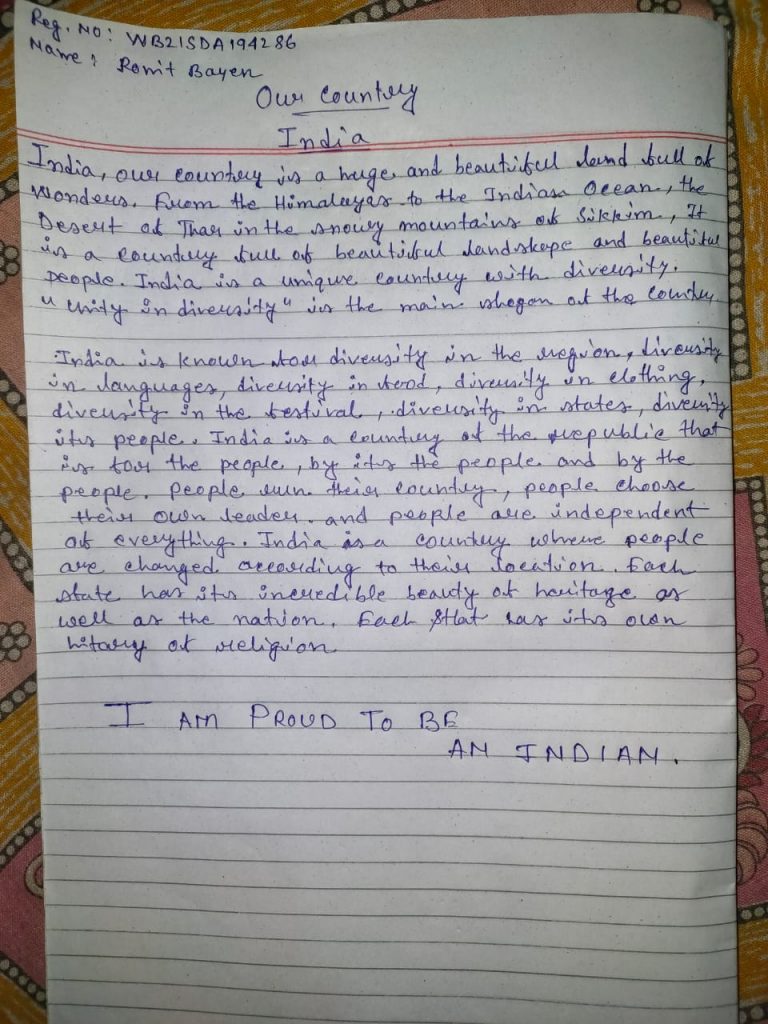 Reg. NO: WB21SDA194286
Name: Romit Bayen
Our Country
India
India, our country is a huge and beautiful land full of
wonders. From the Himalayas to the Indian Ocean, the
Desert of Thar in the snowy mountains of Sikkim, It
is a country full of beautiful landskepe and beautiful
people. India is a unique country with diversity.
"Unity in diversity" is the main shogan of the Country.
India is known for diversity in the region, diversity
in languages, diversity in food, diversity in clothing,
diversity in the festival, diversity in states, diversity
its people. India is a country of the republic that
is for the people, by its the people and by the
people. People run their country, people choose
their own leader. and people are independent
of everything. India is a country where people
are changed according to their location. Each
state has its incredible beauty of heritage as
well as the nation. Each Stat has its own
hitary of religion
I AM PROUD TO BE
AN INDIAN.